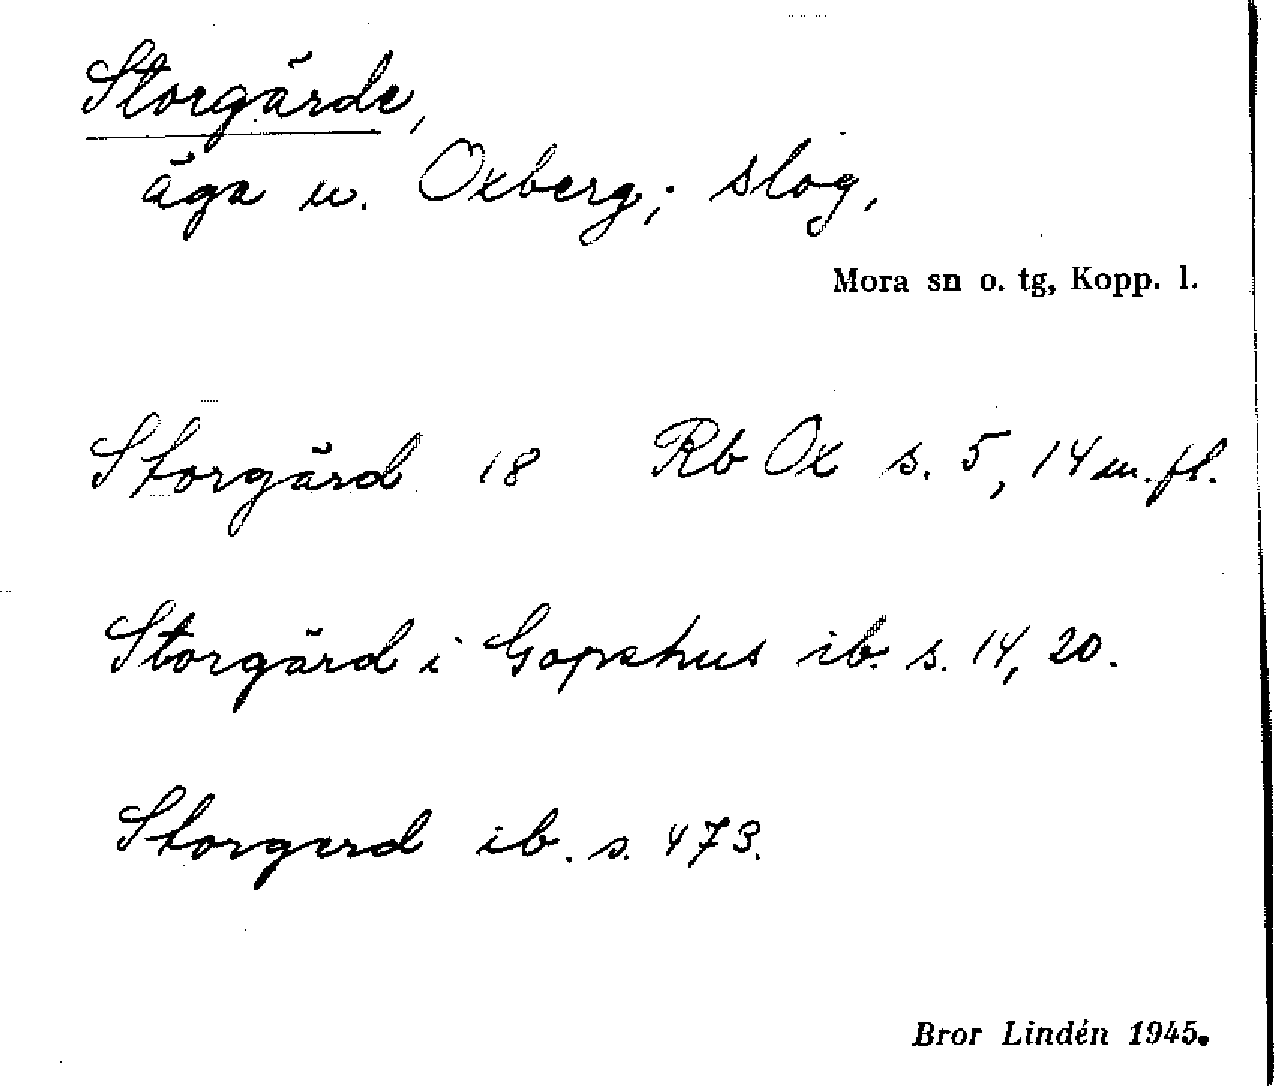 Storgärde,
äga u. Oxberg; slog,
Mora sn o. tg, Kopp. l.
Storgärd 18 Rb Ox s. 5, 14 m. fl.
Storgärd i Gopshus ib. s. 14, 20.
Storgerd ib. s. 473.
Bror Lindén 1945.